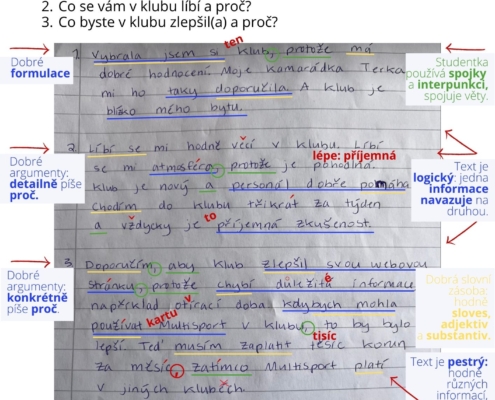 2. Co se vám v klubu líbí a proč?
3. Co byste v klubu zlepšil(a) a proč?
Dobré
formulace
1. Vybrala jsem si ten klub, protože má
dobré hodnocení. Moje kamarádka Terka
mi ho taky doporučila. A klub je
blízko mého bytu.
Studentka
používá spojky
a interpunkci,
spojuje věty.
Dobré
argumenty:
detailně píše
proč.
2. Líbí se mi hodně věcí v klubu. Líbí
lépe: příjemná
se mi atmosféra, protože je pohodlná.
Klub je nový a personál dobře pomáha
Chodím do klubu třikrát za týden
to
a vždycky je příjemná zkušenost.
Text je
logický: jedna
informace
navazuje na
druhou.
Dobré
argumenty:
konkrétně
píše proč.
3. Doporučím, aby klub zlepšil svou webovou
é
stránku, protože chybí důležitá informace
v
například otírací doba. kdybych mohla
kartu
používat Multisport v klubu, to by bylo
tisíc
lepší. Teď musím zaplatit tesíc korun
za měsíc, zatímco Multisport platí
v jiných klubech.
Dobrá slovní
zásoba:
hodně
sloves,
adjektiv
a substantiv.
Text je pestrý:
hodně
různých
informací,